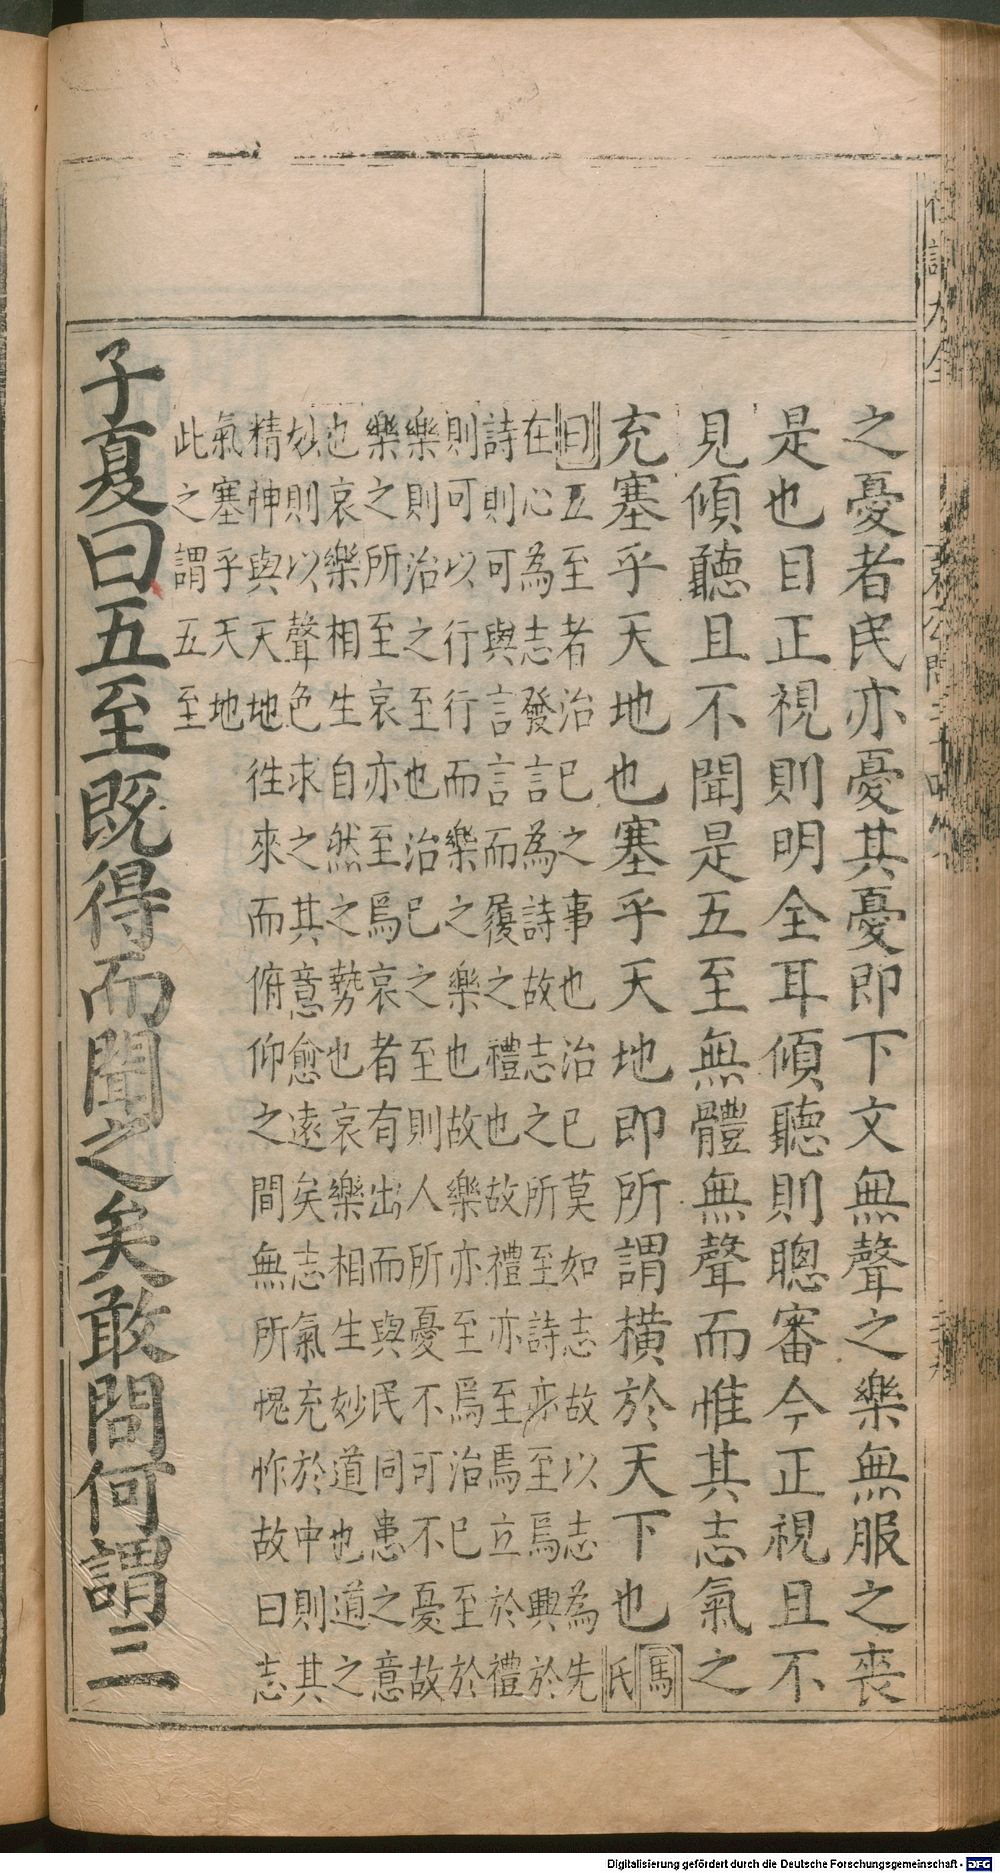 之憂者民亦憂其憂即下文無聲之樂無服之喪
是也目正視則明全耳傾聽則聰審今正視且不
見傾聽且不聞是五至無體無聲而惟其志氣之
充塞乎天地也塞乎天地即所謂橫於天下也馬氏
曰五至者治已之事也治已莫如志故以志為先
在心為志發言為詩故志之所至詩亦至焉興於
詩則可與言言而履之禮也故禮亦至焉立於禮
則可以行行而樂之樂也故樂亦至焉治已至於
樂則治之至也治已之至則人所憂不可不憂故
樂之所至哀亦至焉哀者有出而與民同患之意
也哀樂相生自然之勢也哀樂相生妙道也道之
妙則以聲色求之其意愈遠矣志氣充於中則其
精神與天地徃來而俯仰之間無所愧怍故曰志
氣塞乎天地
此之謂五至
子夏曰五至既得而聞之矣敢問何謂三
Digitalisierung gefördert durch die Deutsche Forschungsgemeinschaft - DFG